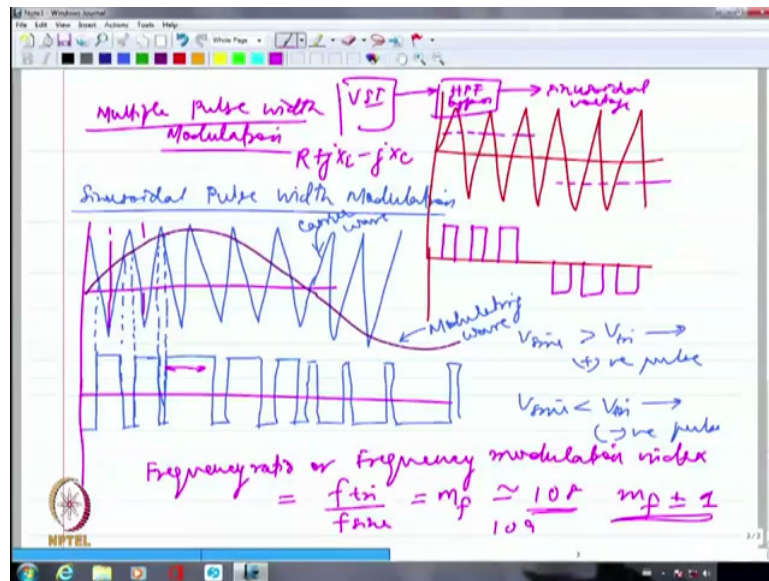 Note1 - Windows Journal
File Edit View Insert Actions Tools Help
Whole Page
Multiple Pulse width
Modulation
VSI
HPF
bypass
sinusoidal
voltage
R+jXL-jXC
Sinusoidal Pulse width Modulation
carrier
wave
Modulating
wave
Vsine > Vtri →
(+)ve pulse
Vsine < Vtri →
(-)ve pulse
Frequency ratio or Frequency modulation index
= ftri/fsine = mf ≃ 108 mf ± 1
109
NPTEL